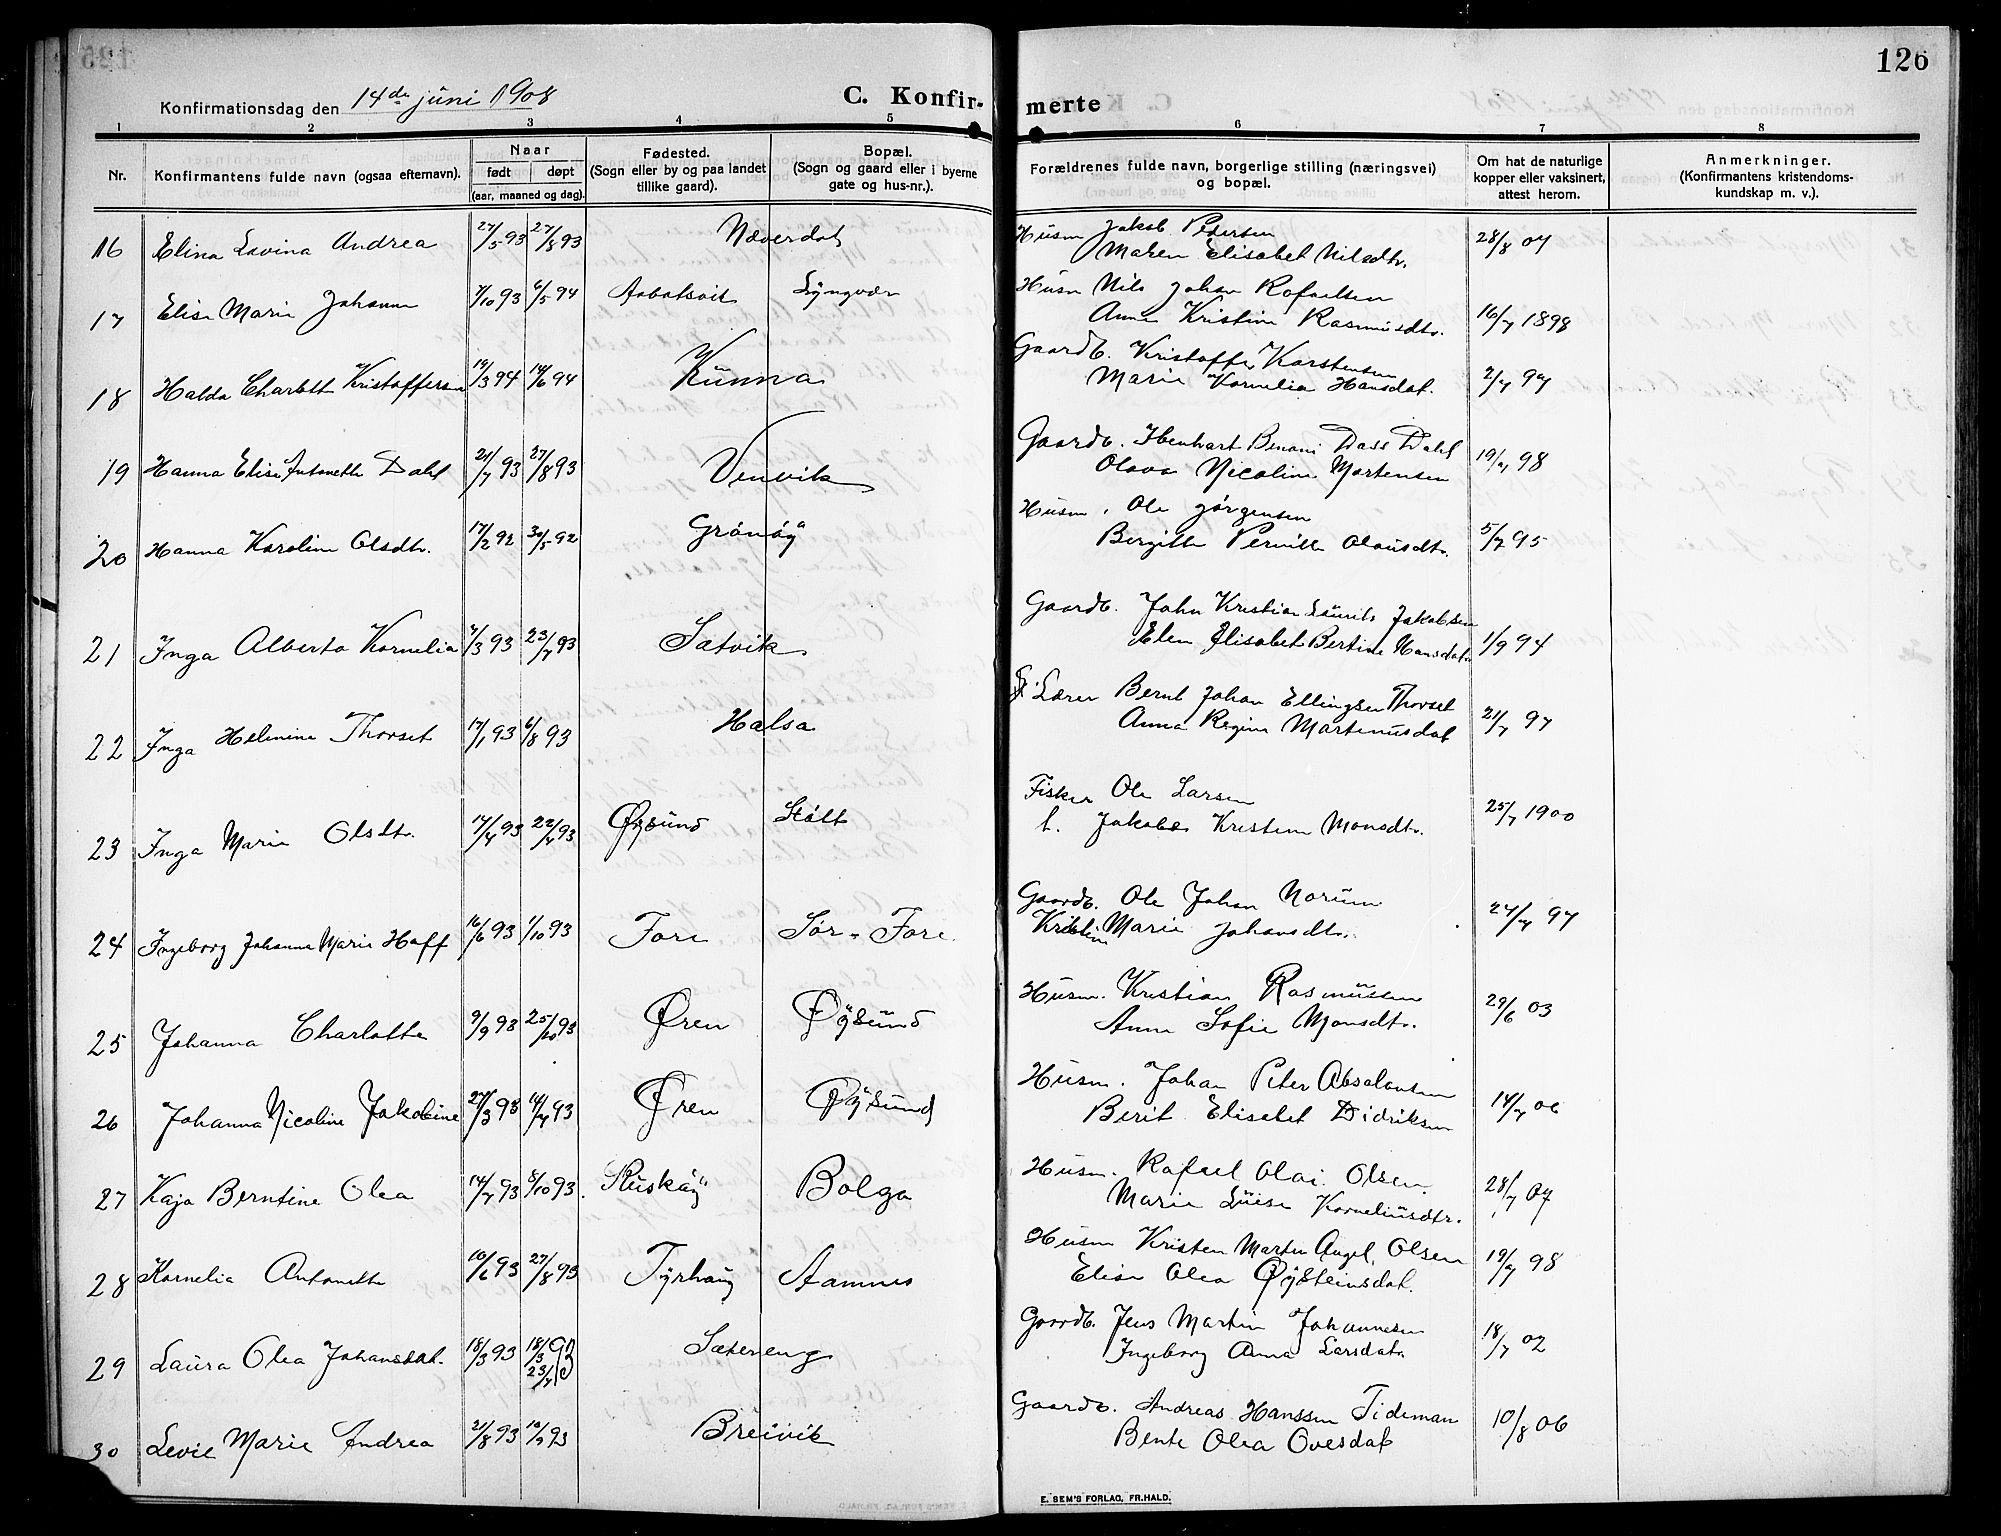 126
Konfirmationsdag den 14de juni 1908
C. Konfir-
merte
1 2 3 4 5 6 7 8
Nr.
Konfirmantens fulde navn (ogsaa efternavn).
Naar
født døpt
(aar, maaned og dag).
Fødested.
(Sogn eller by og paa landet
tillike gaard).
Bopæl.
(Sogn og gaard eller i byerne
gate og hus-nr.).
Forældrenes fulde navn, borgerlige stilling (næringsvei)
og bopæl.
Om hat de naturlige
kopper eller vaksinert,
attest herom.
Anmerkninger.
(Konfirmantens kristendoms-
kundskap m. v.).
16 Elina Lovina Andrea 27/5 93 27/8 93 Næverdal
Husm Jakob Pedersen
Maren Elisabet Nilsdtr. 28/8 07
17 Elise Marie Johanne /10 93 6/5 94 Lyngvær
Husm Nils Johan Rafaelsen
Anne Kristine Rasmusdtr. 16/7 1898
18 Halda Charlott Kristoffersen 19/3 94 14/6 94 Kunna
Gaardb. Kristoffer Karstensen
Marie Kornelia Hansdat. 2/7 97
19 Hanna Elise Antonette Dahl 21/7 93 27/8 93 Venvik
Gaardb. Ibenhart Benoni Dass Dahl
Olava Nicoline Mortensen 19/7 98
20 Hanna Karoline Olsdtr. 17/2 92 30/5 92 Grönöy
Husm. Ole Jørgensen
Birgitte Pernille Olausdtr. 5/7 95
21 Inga Alberta Kornelia 7/3 93 23/7 93 Satvik
Gaardb. John Kristian Laurits Jakobsen
Elen Elisabet Bertine Hansdatr 1/9 94
22 Inga Helmine Thorset 17/1 93 6/8 93 Halsa
Lærer Bernt Johan Ellingsen Thorset
Anna Regine Martinusdat 21/7 97
23 Inga Marie Olsdtr. 17/4 93 22/4 93 Øysund Støtt
Fisker Ole Larsen
f. Jakobe Kristine Monsdtr. 25/7 1900
24 Ingeborg Johanne Marie Hoff 16/6 93 1/10 93 Fore Sør-Fore
Gaardb. Ole Johan Norum
Kristine Marie Johansdtr. 27/7 97
25 Johanna Charlotte 9/9 93 25/10 93 Øren Øysund
Husm. Kristian Rasmussen
Anne Sofie Monsdtr. 29/6 03
26 Johanna Nicoline Jakobine 27/3 93 14/4 93 Øren Øysund
Husm. Johan Peter Absalonsen
Berit Elisabet Didriksen 14/7 06
27 Kaja Berntine Olea 14/7 93 8/10 93 Ruskøy Bolga
Husm. Rafael Olai Olsen.
Marie Luise Korneliusdtr. 28/7 07
28 Kornelia Antonette 10/6 93 27/8 93 Tyrhaug Aamnes
Husm Kristen Martin Angel Olsen
Elise Olea Øysteinsdat. 19/7 98
29 Laura Olea Johansdat. 18/3 93 18/3 93
23/7
Sætereng
Gaardb. Jens Martin Johannesen
Ingeborg Anna Larsdatr 18/7 02
30 Levie Marie Andrea 21/8 93 10/9 93 Breivik
Gaardb. Andreas Hanssen Tideman
Bente Olea Ovesdat 10/8 06
E. SEM'S FORLAG, FR.HALD.